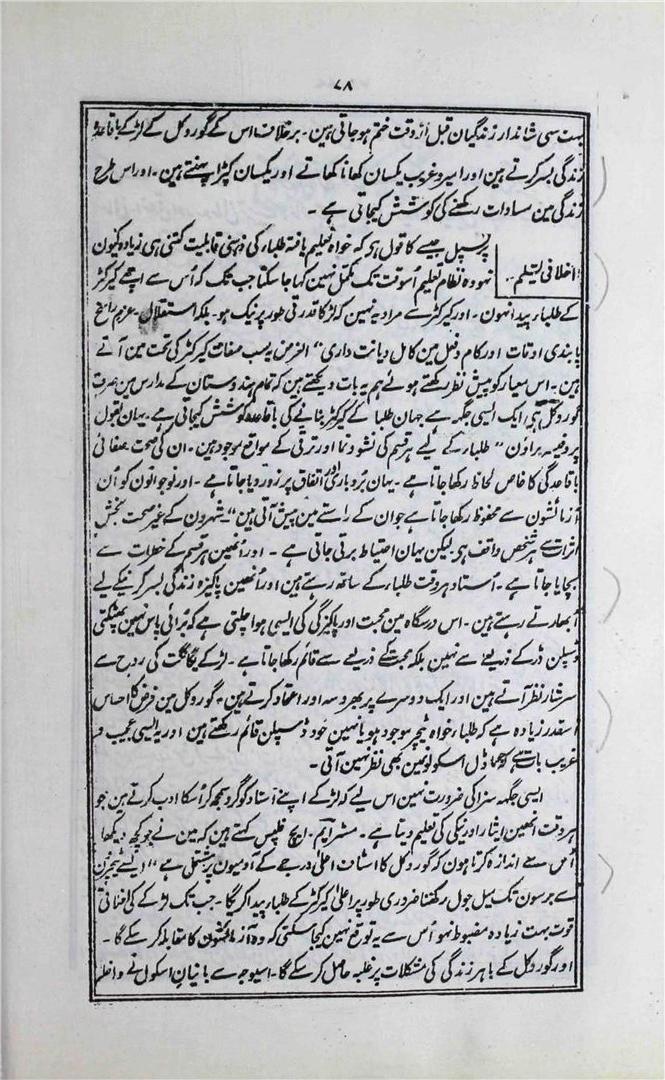 ۷۸
بہت سی شاندار زندگیان قبل از وقت ختم ہو جاتی ہین۔ برخلاف اس کے گوروکل کے لڑکے باقاعدہ
زندگی بسر کرتے ہین اور امیر و غریب یکسان کھانا کھاتے اور یکسان کپڑا پہنتے ہین۔ اور اس طرح
زندگی مین مساوات رکھنے کی کوشش کیجاتی ہے۔
پرنسپل جیسے کا قول ہی کہ خواہ تعلیم یافتہ طلباء کی ذہنی قابلیت کتنی ہی زیادہ کیون
اخلاقی تعلیم۔۔ نہو وہ نظام تعلیم اُسوقت تک مکمل نہین کہا جا سکتا جب تک کہ اُس سے اچھے کیرکٹر
کے طلباء پیدا نہون۔ اور کیرکٹر سے مراد یہ نہین کہ لڑکا قدرتی طور پر نیک ہو۔ بلکہ استقلال۔ عزم راسخ
پابندی اوقات اور کام و فعل مین کامل دیانت داری" الغرض یہ سب صفات کیرکٹر کی تحت مین آتے
ہین۔ اس معیار کو پیش نظر رکھتے ہوئے ہم یہ بات دیکھتے ہین کہ تمام ہندوستان کے مدارس مین صرف
گوروکل ہی ایک ایسی جگہ ہے جہان طلبا کے کیرکٹر بنانے کی باقاعدہ کوشش کیجاتی ہے۔ یہان بقول
پروفیسر براؤن " طلباء کے لیے ہر قسم کی نشو و نما اور ترقی کے مواقع موجود ہین۔ ان کی صحت صفائی
باقاعدگی کا خاص لحاظ رکھا جاتا ہے۔ یہان بُردباری اور اتفاق پر زور دیا جاتا ہے۔ اور نوجوانون کو اُن
آزمائشون سے محفوظ رکھا جاتا ہے جو ان کے راستے مین پیش آتی ہین" شہرون کے غیر صحت بخش
اثرات سے ہر شخص واقف ہی لیکن یہان احتیاط برتی جاتی ہے۔ اور اُنھین ہر قسم کے خطرات سے
بچایا جاتا ہے۔ اُستاد ہر وقت طلباء کے ساتھ رہتے ہین اور اُنھین پاکیزہ زندگی بسر کرنیکے لیے
اُبھارتے رہتے ہین۔ اس درسگاہ مین محبت اور پاکیزگی کی ایسی ہوا چلتی ہے کہ بُرائی پاس نہین پھٹکتی
ڈسپلن ڈر کے ذریعے سے نہین بلکہ محبت کے ذریعے سے قائم رکھا جاتا ہے۔ لڑکے یگانگت کی روح سے
سرشار نظر آتے ہین اور ایک دوسرے پر بھروسہ اور اعتماد کرتے ہین۔ گوروکل مین فرض کا احساس
اسقدر زیادہ ہے کہ طلباء خواہ ٹیچر موجود ہو یا نہین خود ڈسپلن قائم رکھتے ہین اور یہ ایسی عجیب و
غریب بات ہے کہ ماڈل اسکولو نمین بھی نظر نہین آتی۔
ایسی جگہ سزا کی ضرورت نہین اس لیے کہ لڑکے اپنے اُستاد کو گرو سمجھ کر اُسکا ادب کرتے ہین جو
ہر وقت انھین ایثار اور نیکی کی تعلیم دیتا ہے۔ مسٹر ایم۔ ایچ فلپس کہتے ہین کہ مین نے جو کچھ دیکھا
اُس سے اندازہ کرتا ہون کہ گوروکل کا اسٹاف اعلیٰ درجے کے آدمیون پر مشتمل ہے" ایسے ٹیچرون
سے برسون تک میل جول رکھنا ضروری طور پر اعلیٰ کیرکٹر کے طلباء پیدا کریگا۔ جب تک لڑکے کی اخلاقی
قوت بہت زیادہ مضبوط نہو اُس سے یہ توقع نہین کیجا سکتی کہ وہ آزمائشون کا مقابلہ کر سکے گا۔
اور گوروکل کے باہر زندگی کی مشکلات پر غلبہ حاصل کر سکے گا۔ اسیوجہ سے بانیان اسکول نے داخلہ